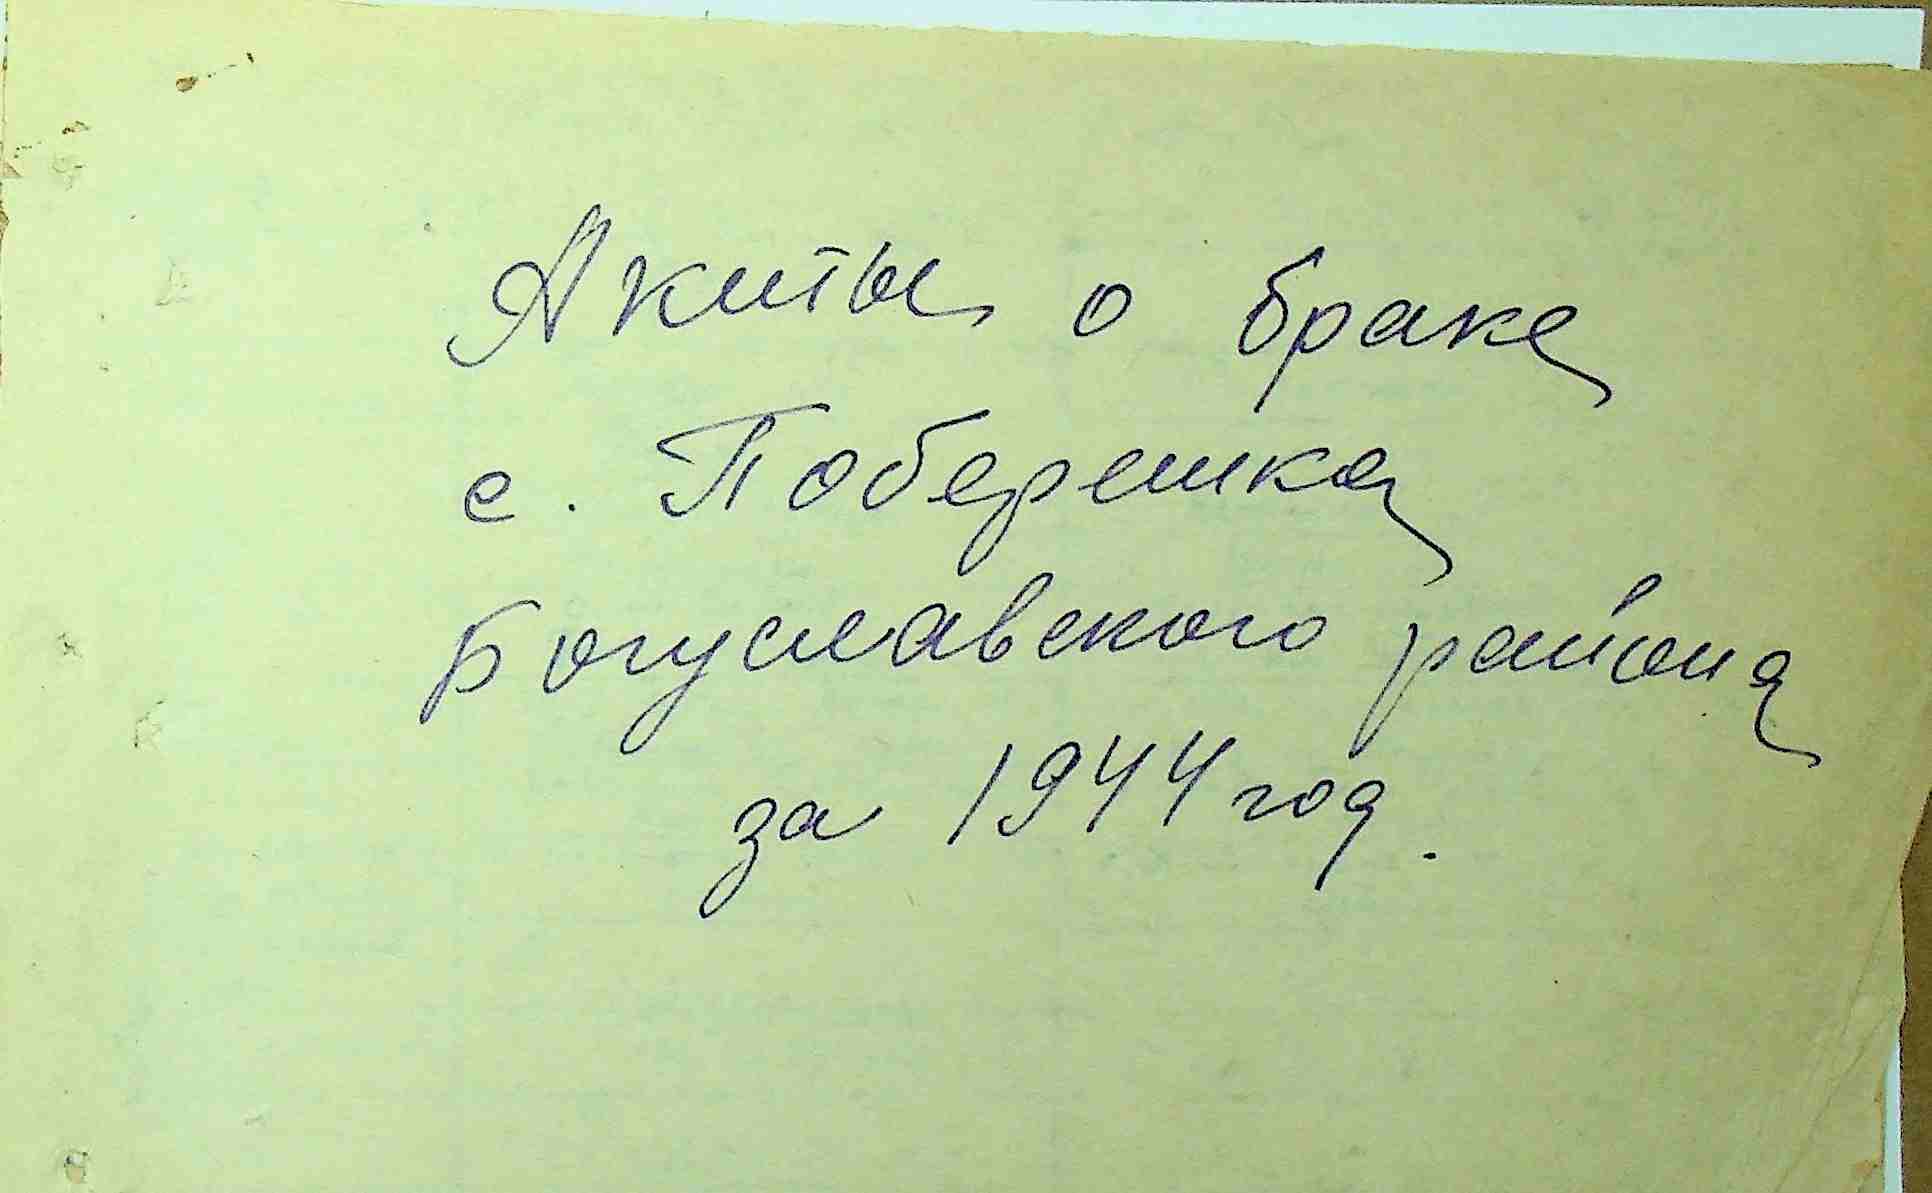 Акты о браке
с. Поберешка
Богуславского района
за 1944 год.